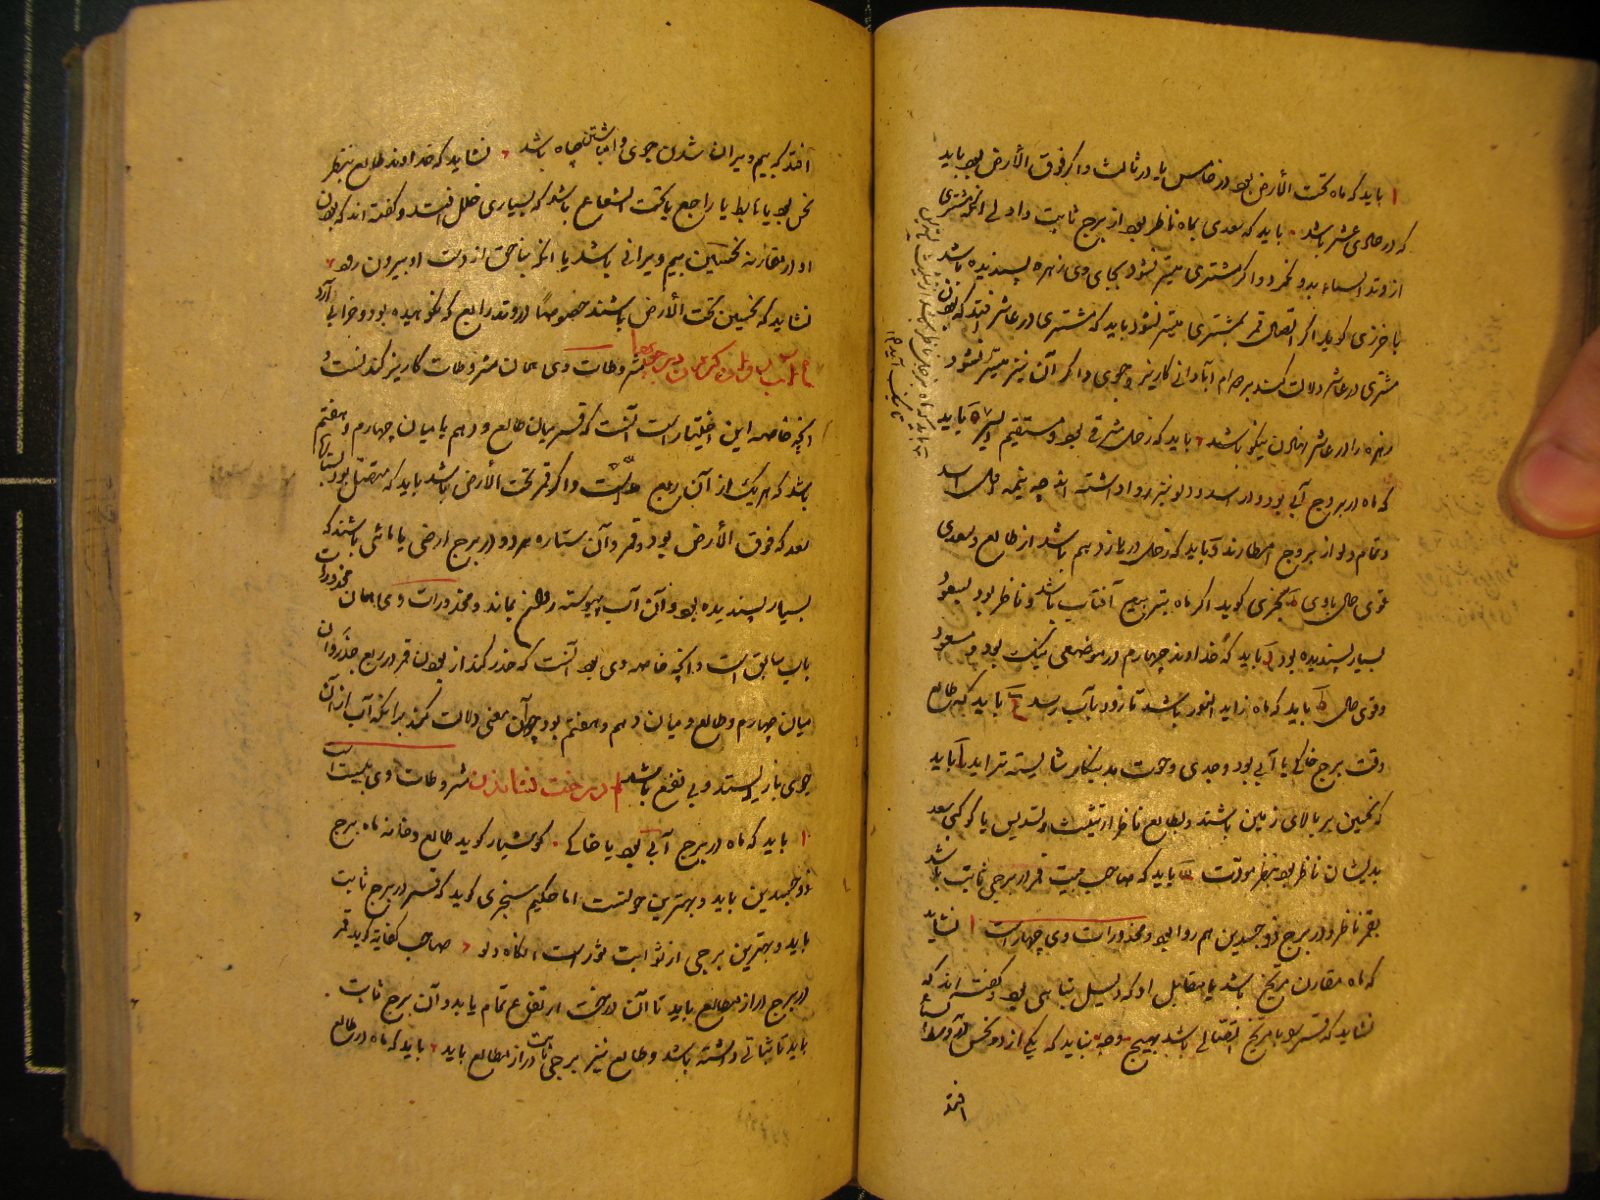 ۱ باید که ماه تحت الأرض بود در خامس یا در ثالث و اگر فوق الأرض بود باید
که در حادی عشر باشد باید که سعدی بماه ناظر بود از برج ثابت و اولی آنکه مشتری
از وتد السماء بدو نگرد و اگر مشتری میسر نشود بجای وی زهره پسندیده باشد
باخرزی گوید اگر اتصال قمر بمشتری میسر نشود باید که مشتری در عاشر افتد که بودن
مشتری در عاشر دلالت کند بر دوام آبادانی کاریز و جوی و اگر آن نیز میسر نشود
زهره را در عاشر نهادن نیکو باشد باید که زحل مشرقی بود و مستقیم السیر ۵ باید
که ماه در بروج آبی بود و در اسد و دلو نیز روا داشته اند چه نیمه اسد
و تمام دلو از بروج امطارند باید که زحل در یازدهم باشد از طالع و سعدی
قوی حال با وی سجزی گوید اگر ماه بتربیع آفتاب باشد و ناظر بود بسعود
بسیار پسندیده بود باید که خداوند چهارم در موضعی نیک بود و مسعود
و قوی حال باید که ماه زاید النور باشد تا زود بآب رسد باید که طالع
وقت برج خاکی یا آبی بود و جدی و حوت بدینکار شایسته تراید باید
که نحسین بر بالای زمین باشند و بطالع ناظر از تثلیث و تسدیس یا کوکبی سعد
بدیشان ناظر بود بنظر مودت باید که صاحب بیت قمر در برجی ثابت باشد
بقمر ناظر و در برج ذو جسدین هم روا بود و محذورات وی چهار است ۱ نشاید
که ماه مقارن مریخ باشد یا مقابل او که دلیل تباهی بود و گفته اند که
نشاید که قمر را با مریخ اتصالی باشد بهیچ وجه نباید که یکی از دو نحس در وسط السماء
افتد
افتد که بیم ویران شدن جوی و انباشتن چاه باشد نشاید که خداوند طالع بنظر
نحس بود یا هابط یا راجع یا تحت الشعاع باشد که بسیاری خلل افتد و گفته اند که بودن
او در مقارنه نحسین بیم ویرانی باشد یا آنکه بناحق از دست او بیرون رود
نشاید که نحسین تحت الأرض باشند خصوصا در وتد رابع که نکوهیده بود و خرابی آرد
مشروطات وی همان مشروطات کاریز کندنست و
آنچه خاصه این اختیار است آنست که قمر میان طالع و دهم یا میان چهارم و هفتم
باشد که هر یک از آن ربع و اگر قمر تحت الأرض باشد باید که متصل بود بستاره
سعد که فوق الأرض بود و قمر و آن ستاره هر دو در برج ارضی یا مائی باشند که
بسیار پسندیده بود و آن آب پیوسته روان بماند و محذورات وی همان محذورات
باب سابق است و آنچه خاصه وی بود آنست که حذر کند از بودن قمر در ربع
میان چهارم و طالع و میان دهم و هفتم بود چه آن معنی دلالت کند بر آنکه آب از آن
جوی باز ایستد و بی نفع باشد درخت نشاندن مشروطات وی بیست است
۱ باید که ماه در برج آبی بود یا خاکی کوشیار گوید طالع و خانه ماه برج
ذو جسدین باید و بهترین حوتست اما حکیم سجزی گوید که قمر در برج ثابت
باید و بهترین برجی از ثوابت ثور است آنگاه دلو صاحب کفایه گوید قمر
در برج دراز مطالع باید تا آن درخت ارتفاع تمام یابد و آن برج ثابت
باید تا ثباتی داشته باشد و طالع نیز برجی ثابت دراز مطالع باید باید که ماه در طالع